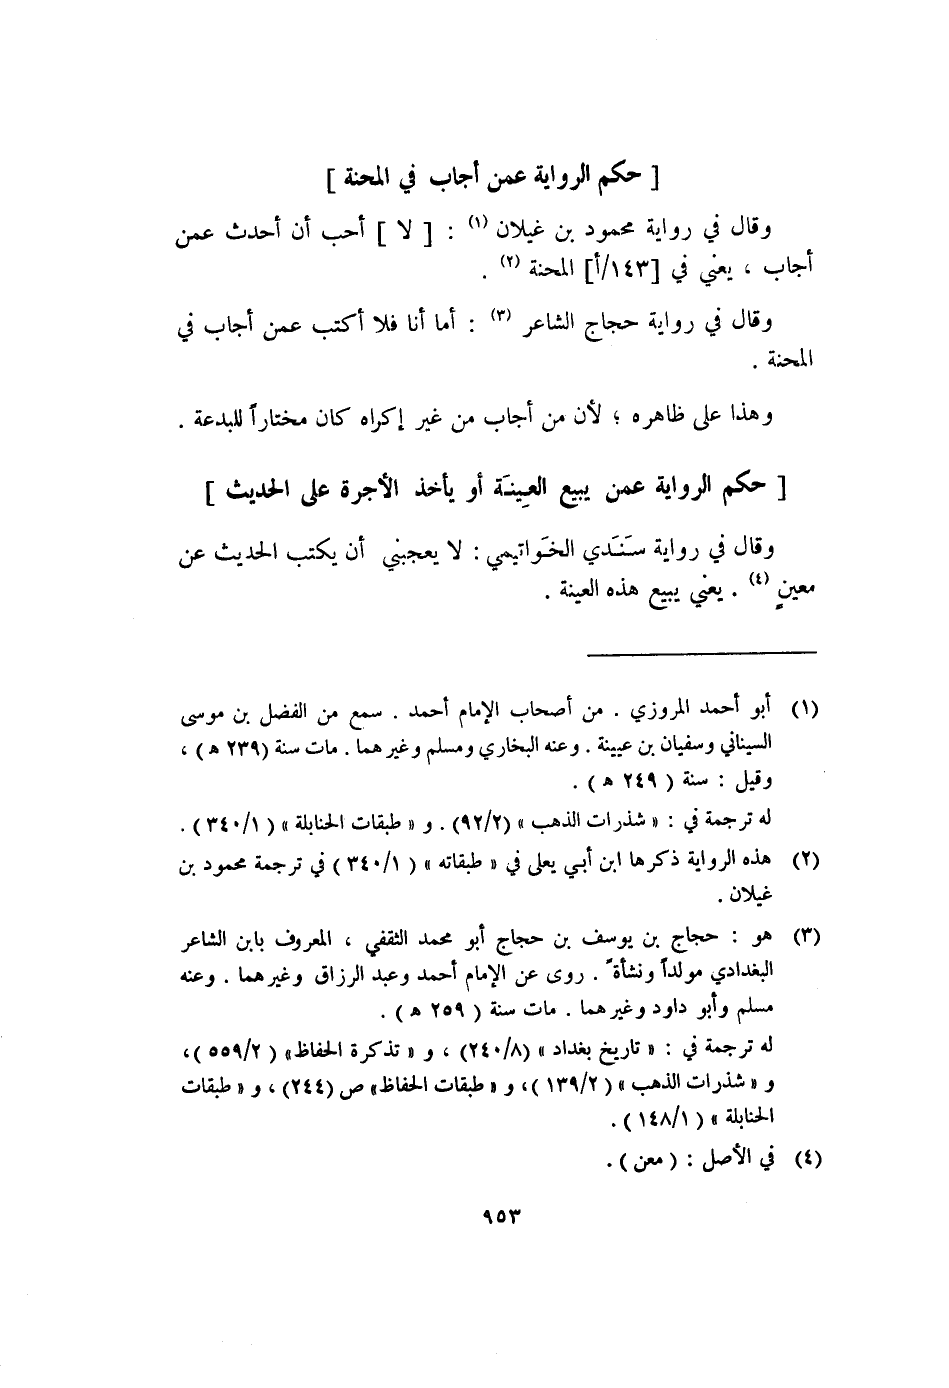 [ حكم الرواية عمن أجاب في المحنة ]
وقال في رواية محمود بن غيلان (١) : [ لا ] أحب أن أحدث عمن
أجاب ، يعني في [١٤٣/أ] المحنة (٢) .
وقال في رواية حجاج الشاعر (٣) : أما أنا فلا أكتب عمن أجاب في
المحنة .
وهذا على ظاهره ؛ لأن من أجاب من غير إكراه كان مختاراً للبدعة .
[ حكم الرواية عمن يبيع العِينَة أو يأخذ الأجرة على الحديث ]
وقال في رواية سَنَدي الخَواتيمي : لا يعجبني أن يكتب الحديث عن
معينٍ (٤) . يعني يبيع هذه العينة .
(١) أبو أحمد المروزي . من أصحاب الإمام أحمد . سمع من الفضل بن موسى
السيناني وسفيان بن عيينة . وعنه البخاري ومسلم وغيرهما . مات سنة (٢٣٩ ه) ،
وقيل : سنة ( ٢٤٩ ه ) .
له ترجمة في : « شذرات الذهب » (٩٢/٢) . و « طبقات الحنابلة » ( ٣٤٠/١ ) .
(٢) هذه الرواية ذكرها ابن أبي يعلى في « طبقاته » ( ٣٤٠/١ ) في ترجمة محمود بن
غيلان .
(٣) هو : حجاج بن يوسف بن حجاج أبو محمد الثقفي ، المعروف بابن الشاعر
البغدادي مولداً ونشأة ً . روى عن الإمام أحمد وعبد الرزاق وغيرهما . وعنه
مسلم وأبو داود وغيرهما . مات سنة ( ٢٥٩ ه ) .
له ترجمة في : « تاريخ بغداد » (٢٤٠/٨) ، و « تذكرة الحفاظ» ( ٥٥٩/٢ )،
و « شذرات الذهب » ( ١٣٩/٢ )، و « طبقات الحفاظ» ص (٢٤٤) ، و « طبقات
الحنابلة » ( ١٤٨/١ ) .
(٤) في الأصل : ( معن ) .
٩٥٣